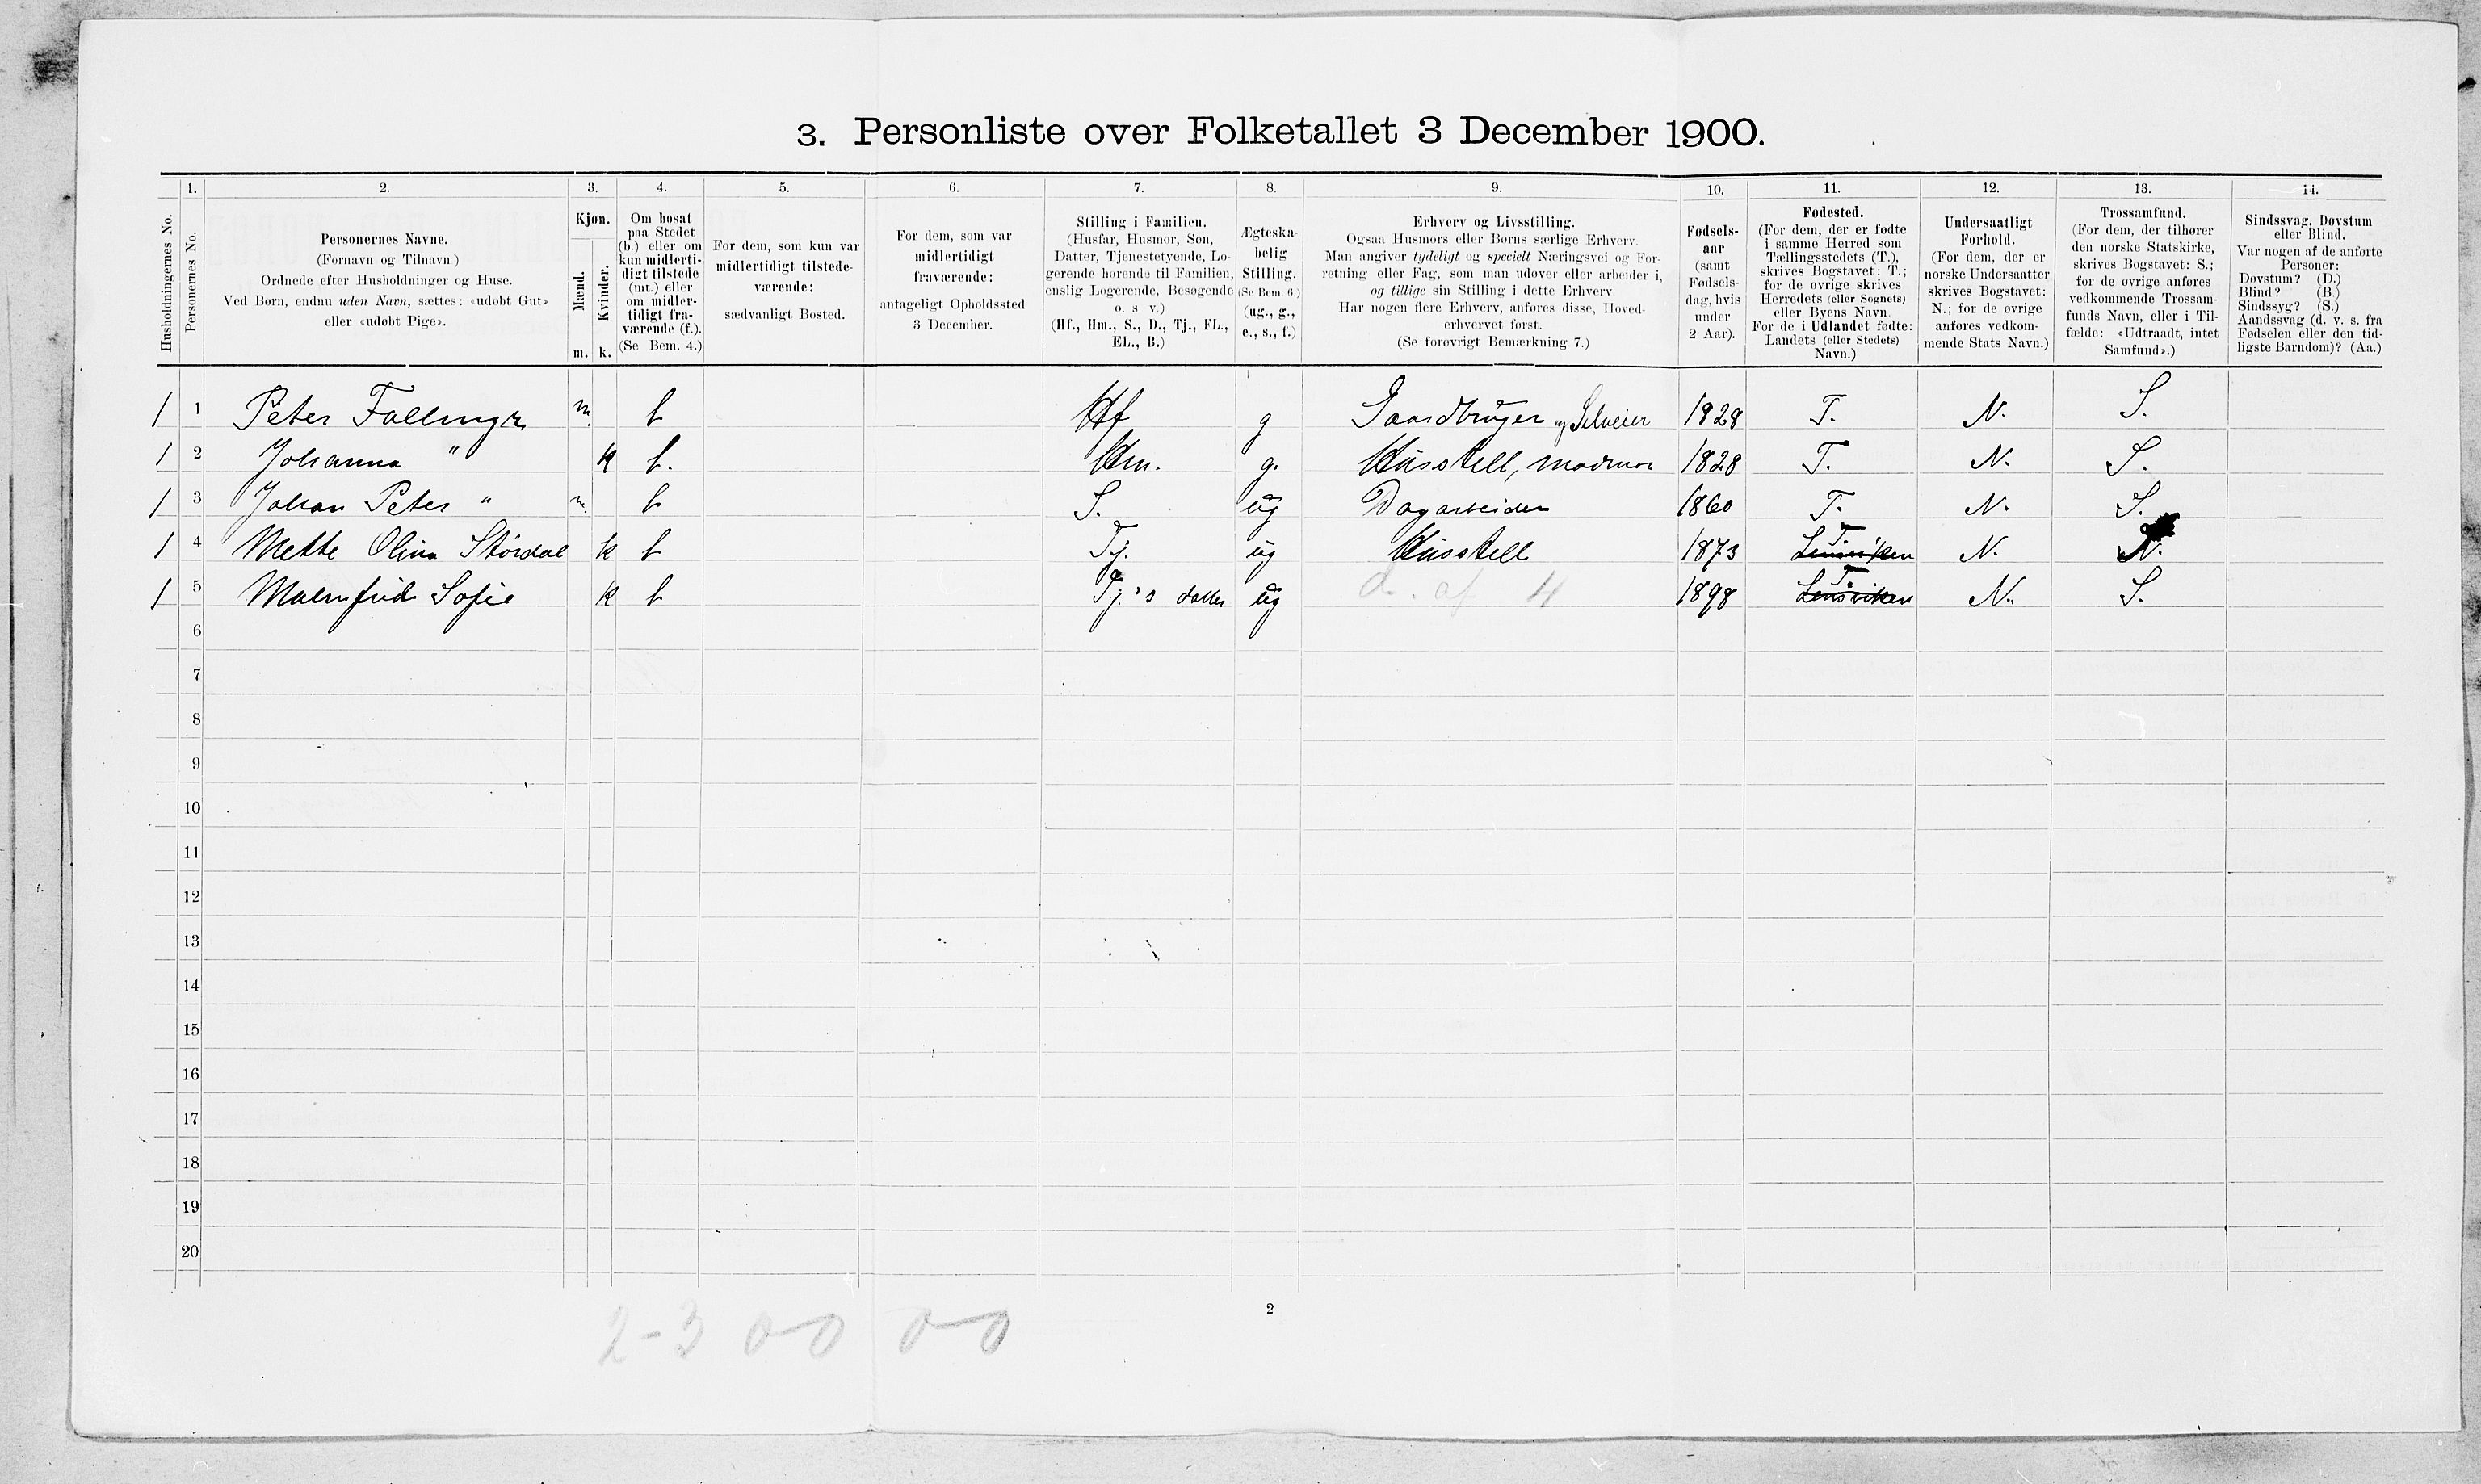 3. Personliste over Folketallet 3 December 1900.
1. 2. 3. 4. 5. 6. 7. 8. 9. 10. 11. 12. 13. 14.
Husholdningernes No.
Personernes No.
Personernes Navne.
(Fornavn og Tilnavn)
Ordnede efter Husholdninger og Huse.
Ved Børn, endnu uden Navn, sættes: «udøbt Gut»
eller «udøbt Pige».
Kjøn.
Mænd.
Kvinder.
m. k.
Om bosat
paa Stedet
(b.) eller om
kun midlerti-
digt tilstede
(mt.) eller
om midler-
tidigt fra-
værende (f.).
(Se Bem. 4.)
For dem, som kun var
midlertidigt tilstede-
værende:
sædvanligt Bosted.
For dem, som var
midlertidigt
fraværende:
antageligt Opholdssted
3 December.
Stilling i Familien.
(Husfar, Husmor, Søn,
Datter, Tjenestetyende, Lo-
gerende hørende til Familien,
enslig Logerende, Besøgende
o. s v.)
(Hf., Hm., S., D., Tj., FL.,
EL., B.)
Ægteska-
belig
Stilling.
(Se Bem. 6.)
(ug., g.,
e., s., f.)
Erhverv og Livsstilling.
Ogsaa Husmors eller Børns særlige Erhverv.
Man angiver tydeligt og specielt Næringsvei og For-
retning eller Fag, som man udøver eller arbeider i,
og tillige sin Stilling i dette Erhverv.
Har nogen flere Erhverv, anføres disse, Hoved-
erhvervet først.
(Se forøvrigt Bemærkning 7.)
Fødsels-
aar
(samt
Fødsels-
dag, hvis
under
2 Aar).
Fødested.
(For dem, der er fødte
i samme Herred som
Tællingsstedets (T.),
skrives Bogstavet: T.;
for de øvrige skrives
Herredets (eller Sognets)
eller Byens Navn.
For de i Udlandet fødte:
Landets (eller Stedets)
Navn.)
Undersaatligt
Forhold.
(For dem, der er
norske Undersaatter
skrives Bogstavet:
N.; for de øvrige
anføres vedkom-
mende Stats Navn.)
Trossamfund.
(For dem, der tilhører
den norske Statskirke,
skrives Bogstavet: S.;
for de øvrige anføres
vedkommende Trossam-
funds Navn, eller i Til-
fælde: «Udtraadt, intet
Samfund».)
Sindssvag, Døvstum
eller Blind.
Var nogen af de anførte
Personer:
Døvstum? (D.)
Blind? (B.)
Sindssyg? (S.)
Aandssvag (d. v. s. fra
Fødselen eller den tid-
ligste Barndom)? (Aa.)
1 1 Peter m. b Hf g Gaardbruger og Selveier 1828 T. N. S.
1 2 Johanna " k b. Hm. g. Husstell, madmor 1828 T. N. S.
1 3 Johan Peter " m. b S. ug Dagarbeider 1860 T. N. S.
1 4 Mette Olina Størdal k b Tj. ug Husstell 1873 Lensviken T. N. N.
1 5 Malmfrid Sofie k b Tj.'s datter ug d. af 4 1898 Lensviken T. N. S.
6
7
8
9
10
11
12
13
14
15
16
17
18
19
20
2
2-3 0-0 0-0